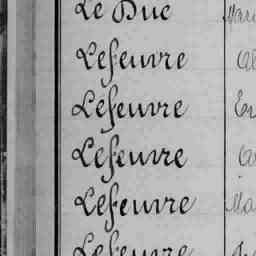 Le Duc
Lefeuvre
Lefeuvre
Lefeuvre
Lefeuvre
Lefeuvre